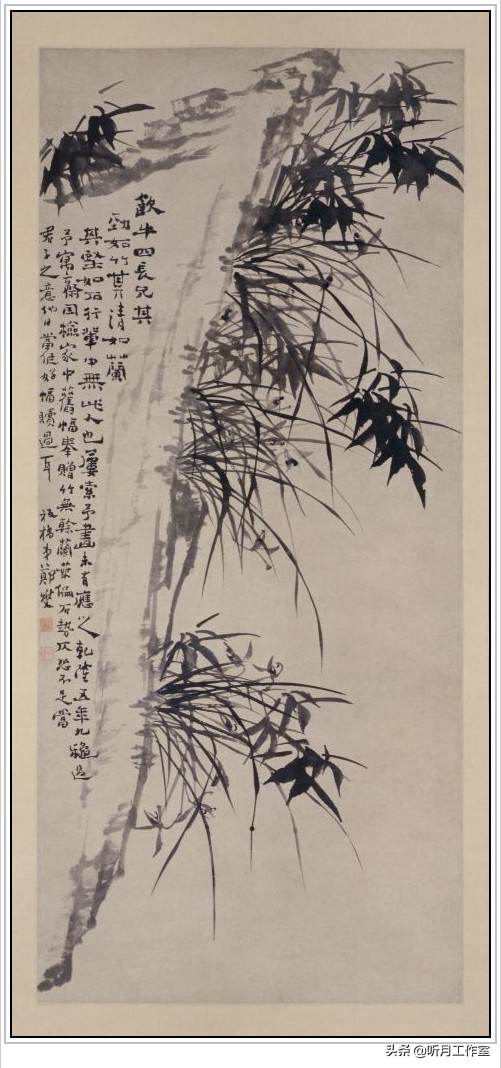 歙牛四長兄其
勁如竹其清如蘭
其堅如石行輩中無此人也屢索予畫未有應之乾隆五年九龝過
予寓齋因檢家中舊幅奉贈竹無餘蘭葉偏石勢仄恐不足當
君子之意他日當作好幅贖過耳 板橋弟鄭燮
头条 @听月工作室